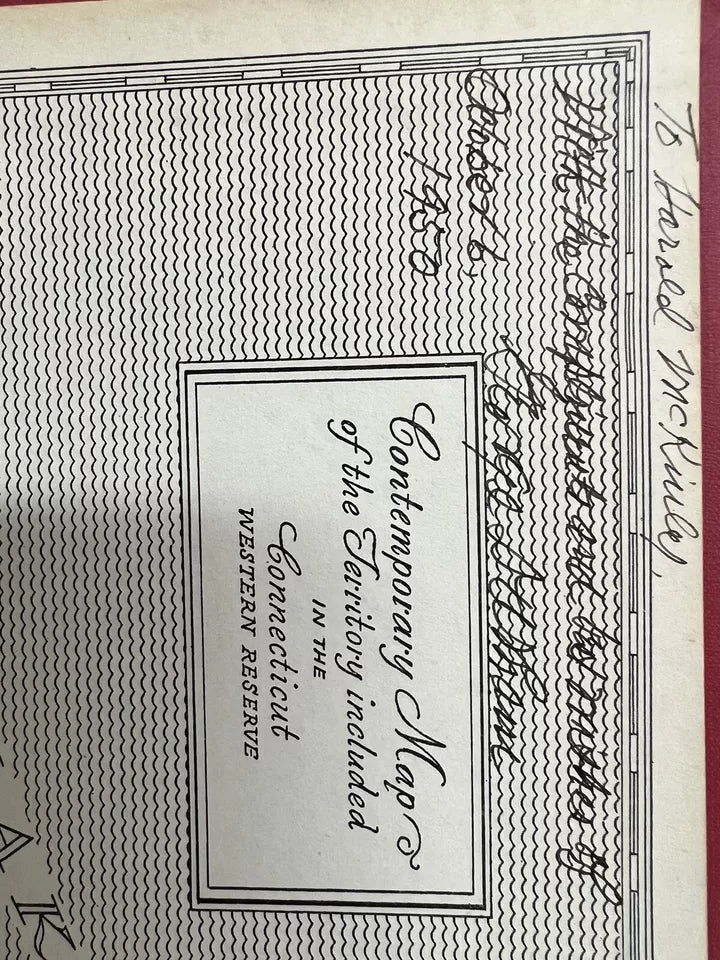 To Harold McKinley,
With the Compliments and best wishes of
October 6,
1950
Contemporary Map
of the Territory included
IN THE
Connecticut
WESTERN RESERVE
A K